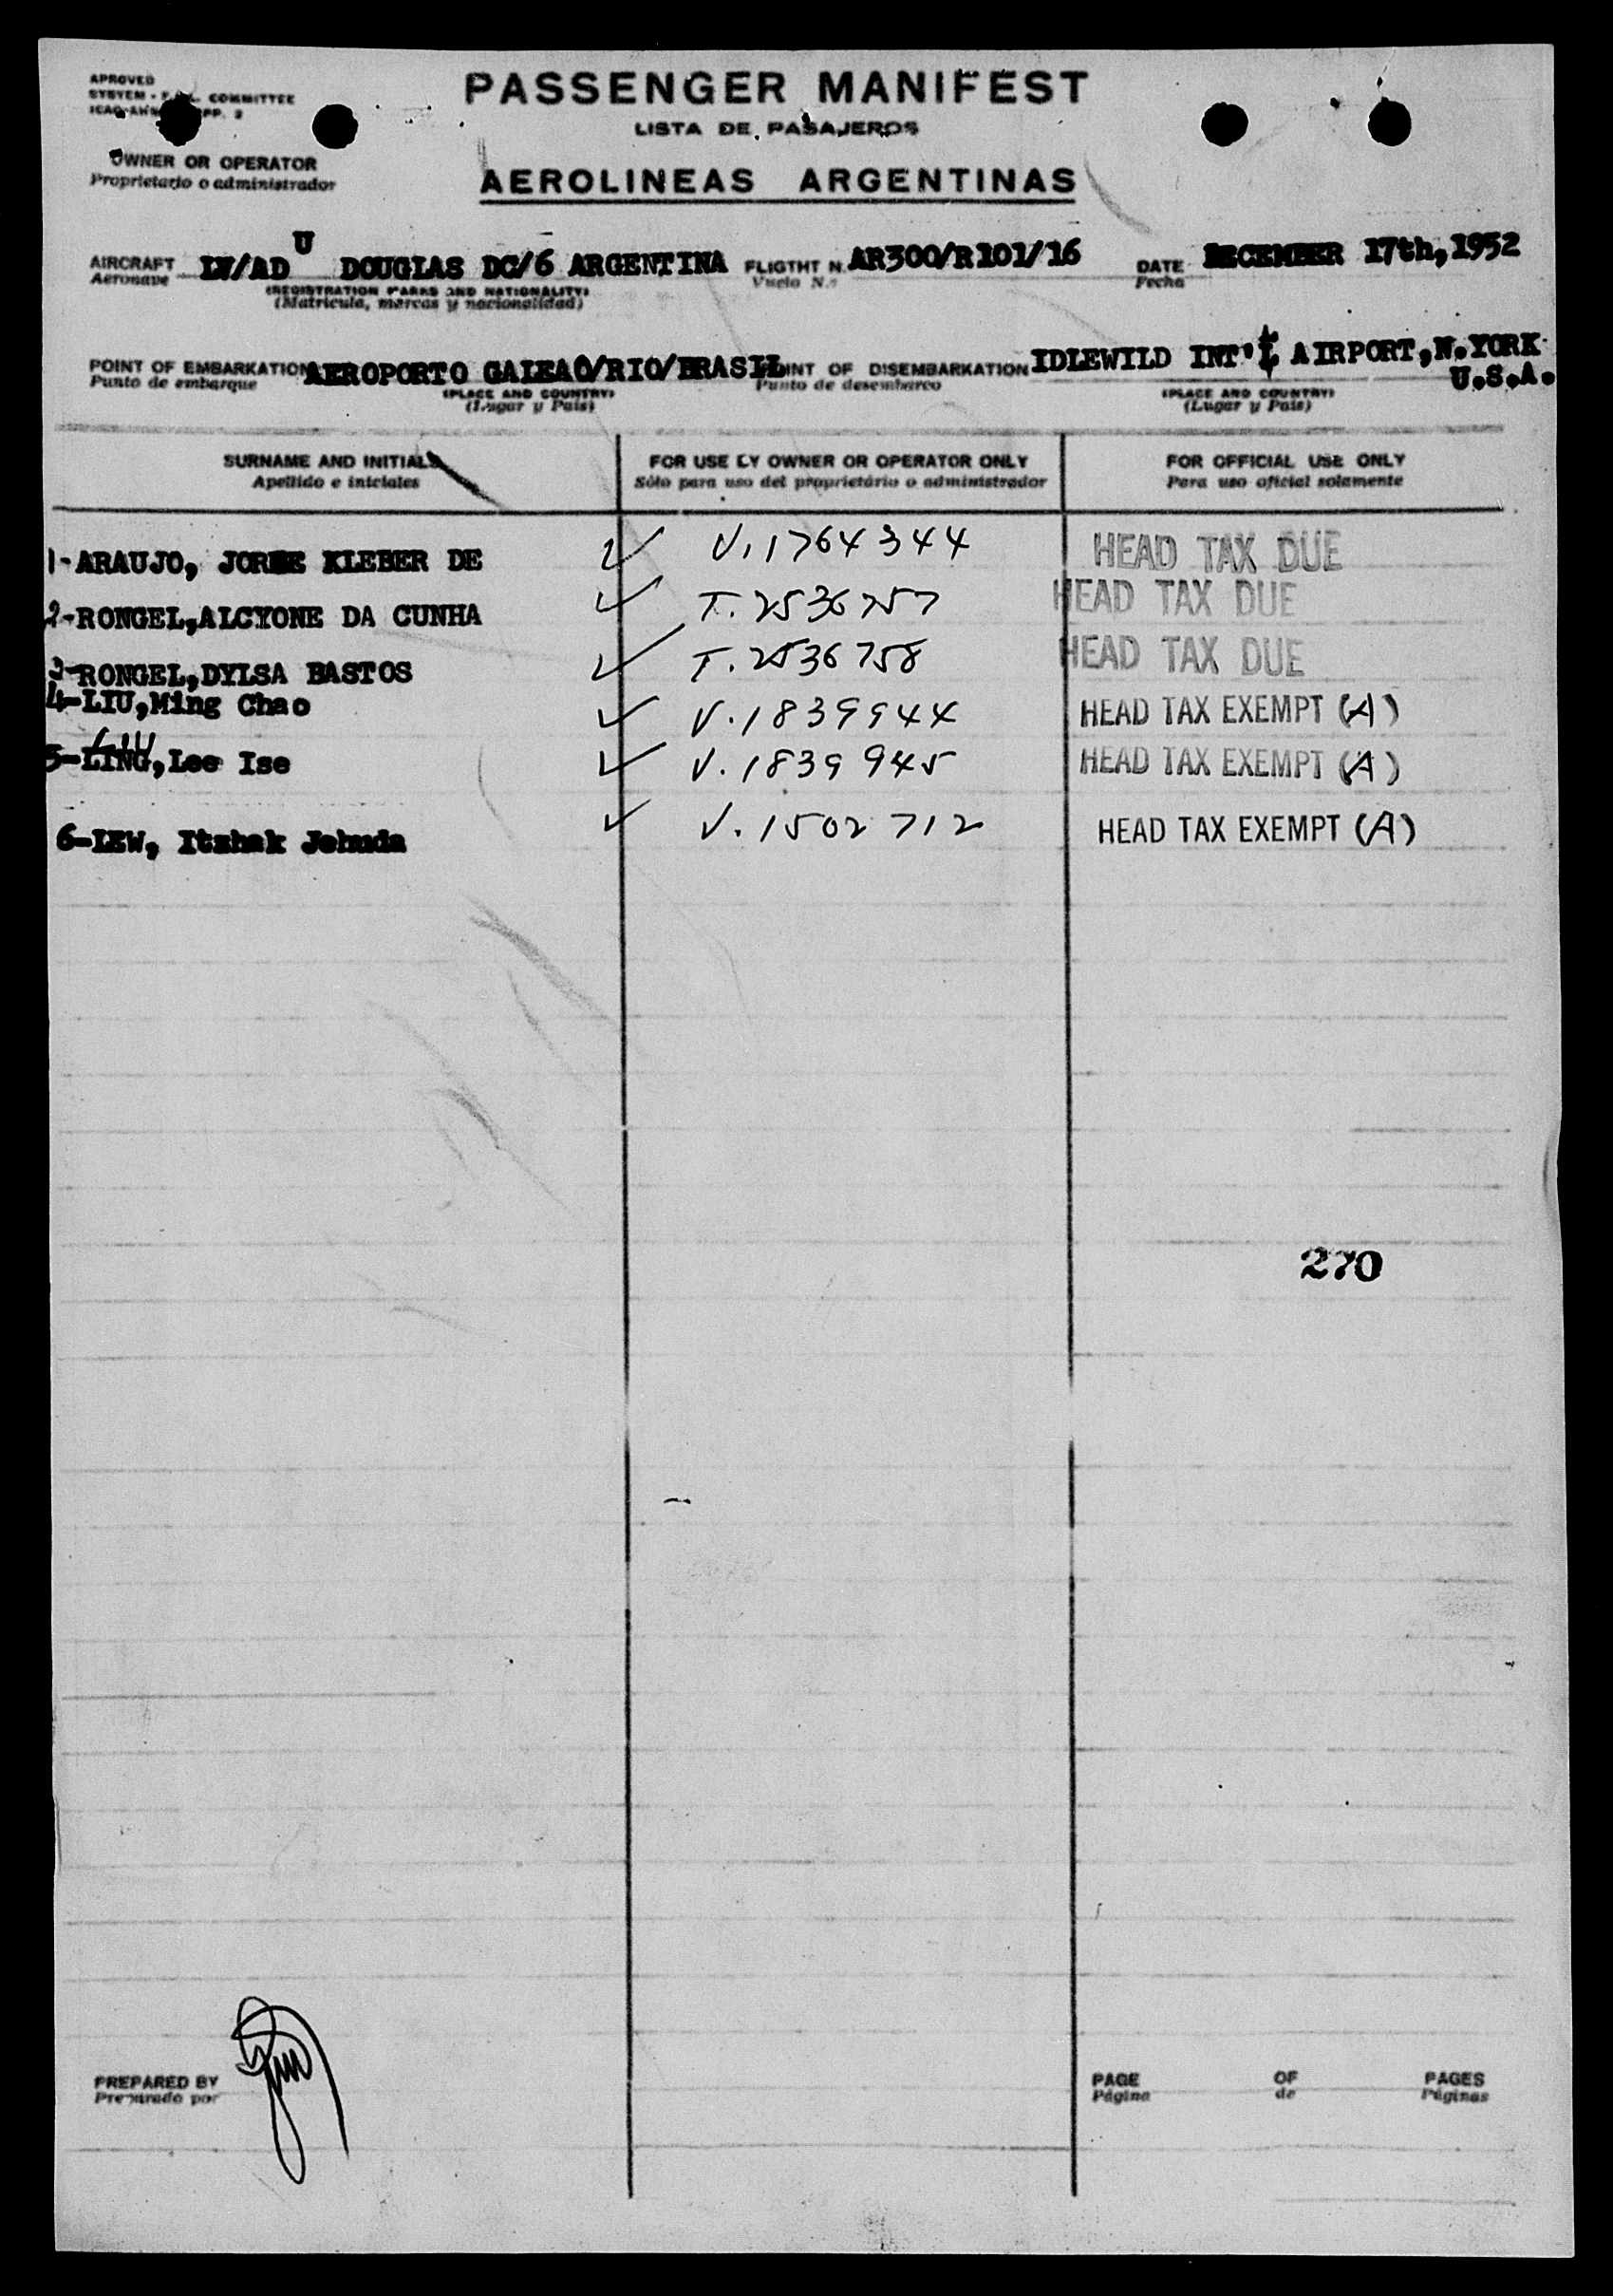 APROVED
SYSTEM - COMMITTEE
PASSENGER MANIFEST
LISTA DE PASAJEROS
OWNER OR OPERATOR
Proprietario o administrador
AEROLINEAS ARGENTINAS
U
AIRCRAFT LV/AD DOUGLAS DC/6 ARGENTINA FLIGTHT N. AR300/R101/16 DATE DECEMBER 17th,1952
Aeronave Vuelo N.º Fecha
(REGISTRATION MARKS AND NATIONALITY)
(Matricula, marcas y nacionalidad)
POINT OF EMBARKATION AEROPORTO GALEAO/RIO/BRASIL POINT OF DISEMBARKATION IDLEWILD INT'L AIRPORT,N.YORK
Punto de embarque Punto de desembarco U.S.A.
(PLACE AND COUNTRY) (PLACE AND COUNTRY)
(Lugar y Pais) (Lugar y Pais)
SURNAME AND INITIALS FOR USE BY OWNER OR OPERATOR ONLY FOR OFFICIAL USE ONLY
Apellido e iniciales Sólo para uso del proprietário o administrador Para uso oficial solamente
1-ARAUJO, JORGE KLEBER DE ✓ V.1764344 HEAD TAX DUE
2-RONGEL,ALCYONE DA CUNHA ✓ T.2536757 HEAD TAX DUE
3-RONGEL,DYLSA BASTOS ✓ T.2536758 HEAD TAX DUE
4-LIU,Ming Chao ✓ V.1839944 HEAD TAX EXEMPT (A)
LIU
5-LING,Lee Ise ✓ V.1839945 HEAD TAX EXEMPT (A)
6-LEW, Itzhak Jehuda ✓ V.1502712 HEAD TAX EXEMPT (A)
270
PREPARED BY PAGE OF PAGES
Preparado por Página de Páginas